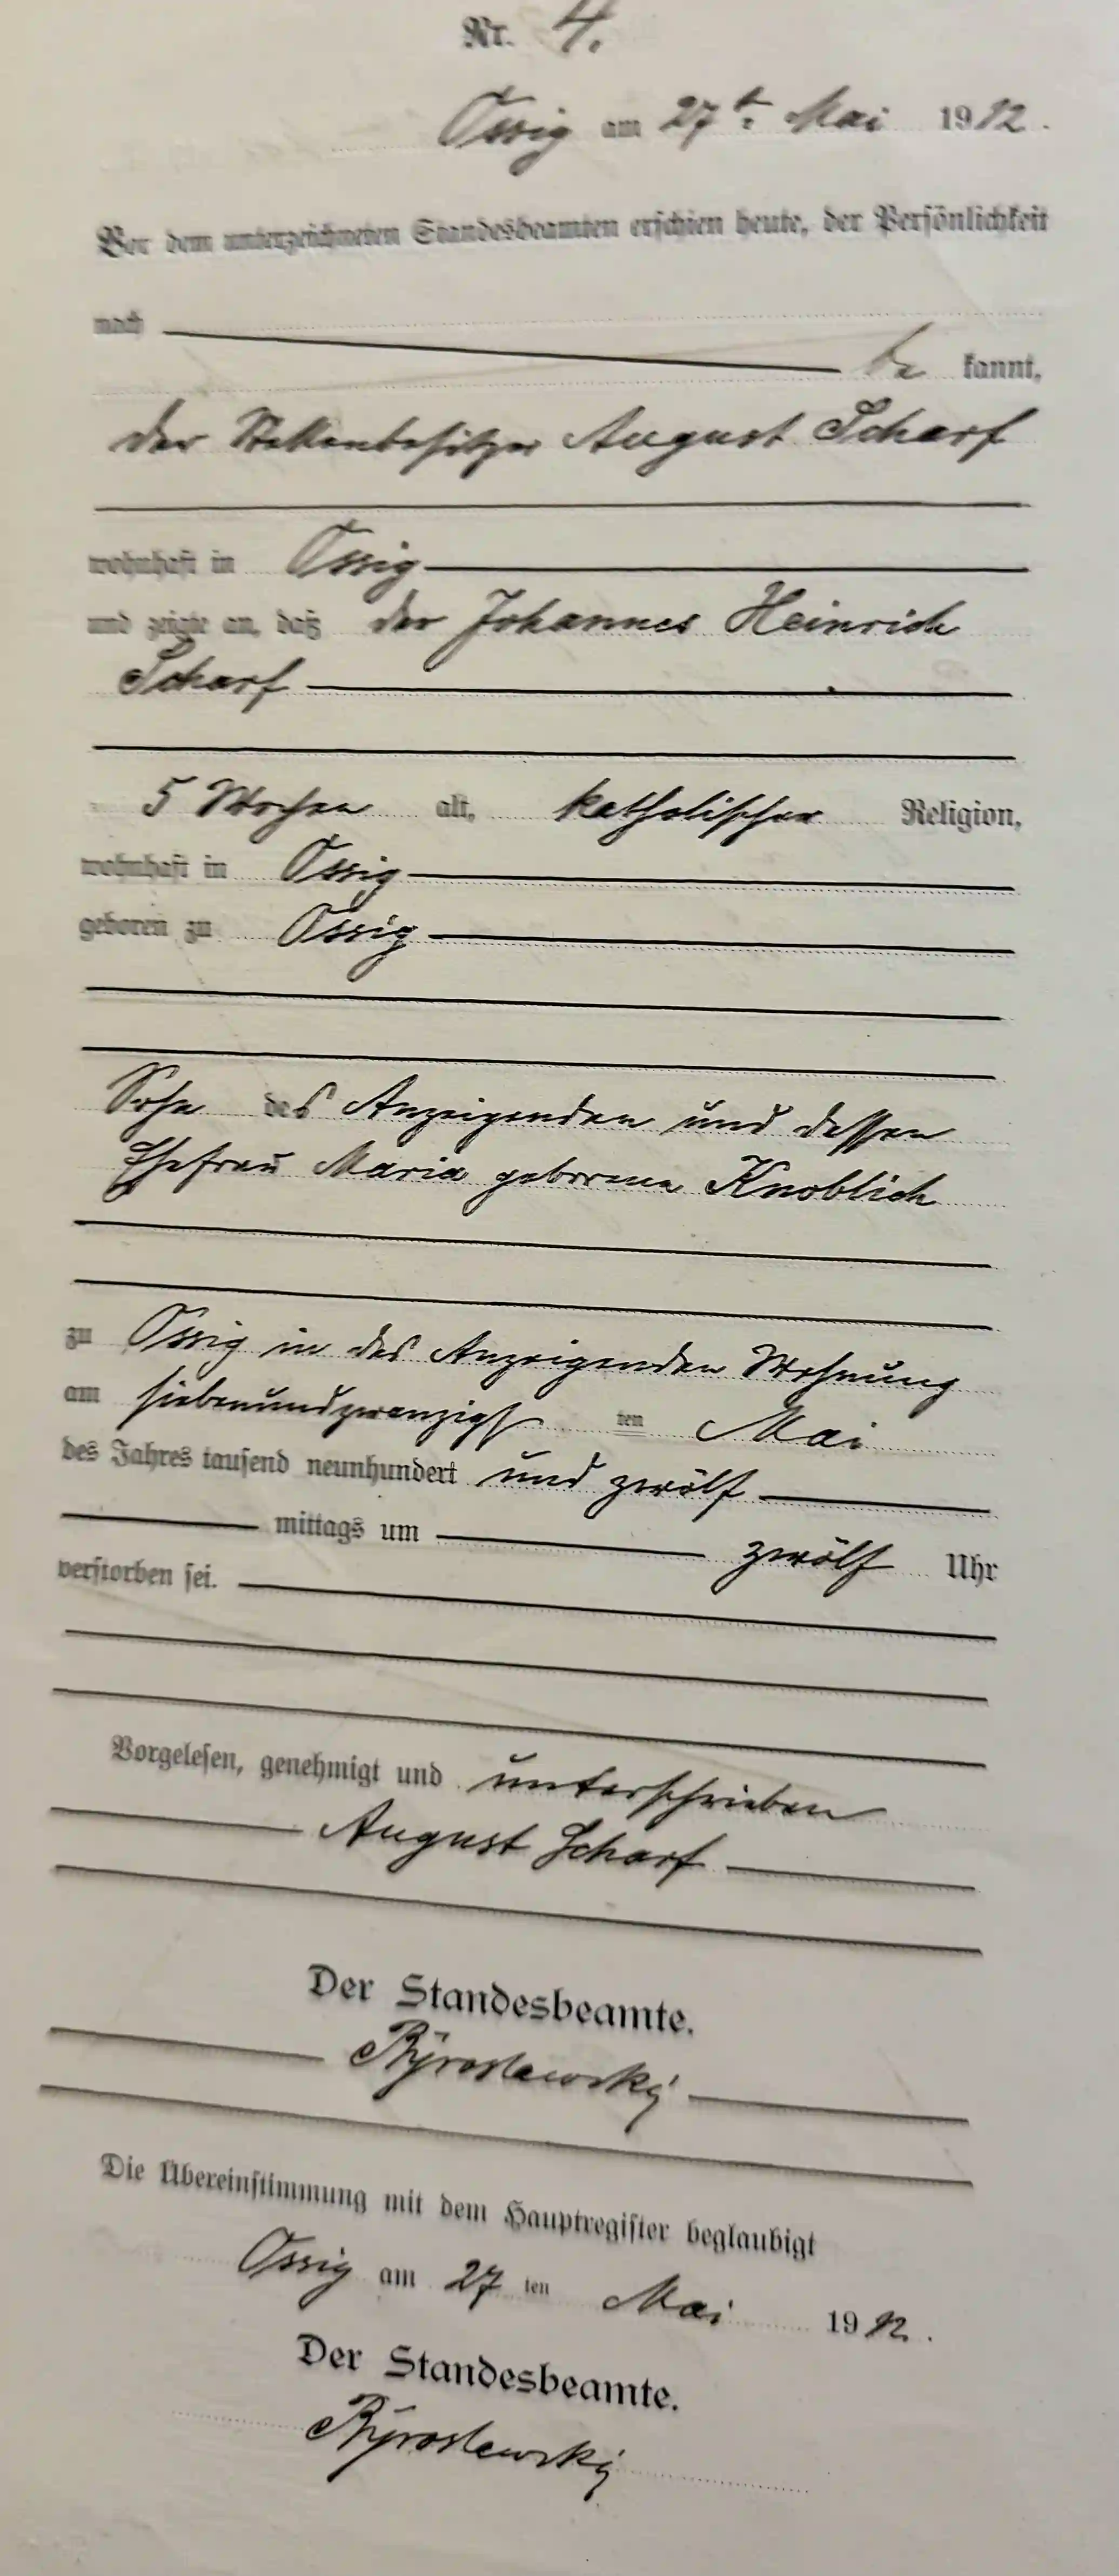 Nr. 4.
Ossig am 27t. Mai 1912.
Vor dem unterzeichneten Standesbeamten erschien heute, der Persönlichkeit
nach
be kannt,
der Stellenbesitzer August Scharf
wohnhaft in Ossig
und zeigte an, daß der Johannes Heinrich
Scharf
5 Wochen alt, katholischer Religion,
wohnhaft in Ossig
geboren zu Ossig
Sohn des Anzeigenden und dessen
Ehefrau Maria geborene Knoblich
zu Ossig in des Anzeigenden Wohnung
am siebenundzwanzigsten Mai
des Jahres tausend neunhundert und zwölf
mittags um zwölf Uhr
verstorben sei.
Vorgelesen, genehmigt und unterschrieben
August Scharf
Der Standesbeamte.
Die Übereinstimmung mit dem Hauptregister beglaubigt
Ossig am 27 ten Mai 1912.
Der Standesbeamte.